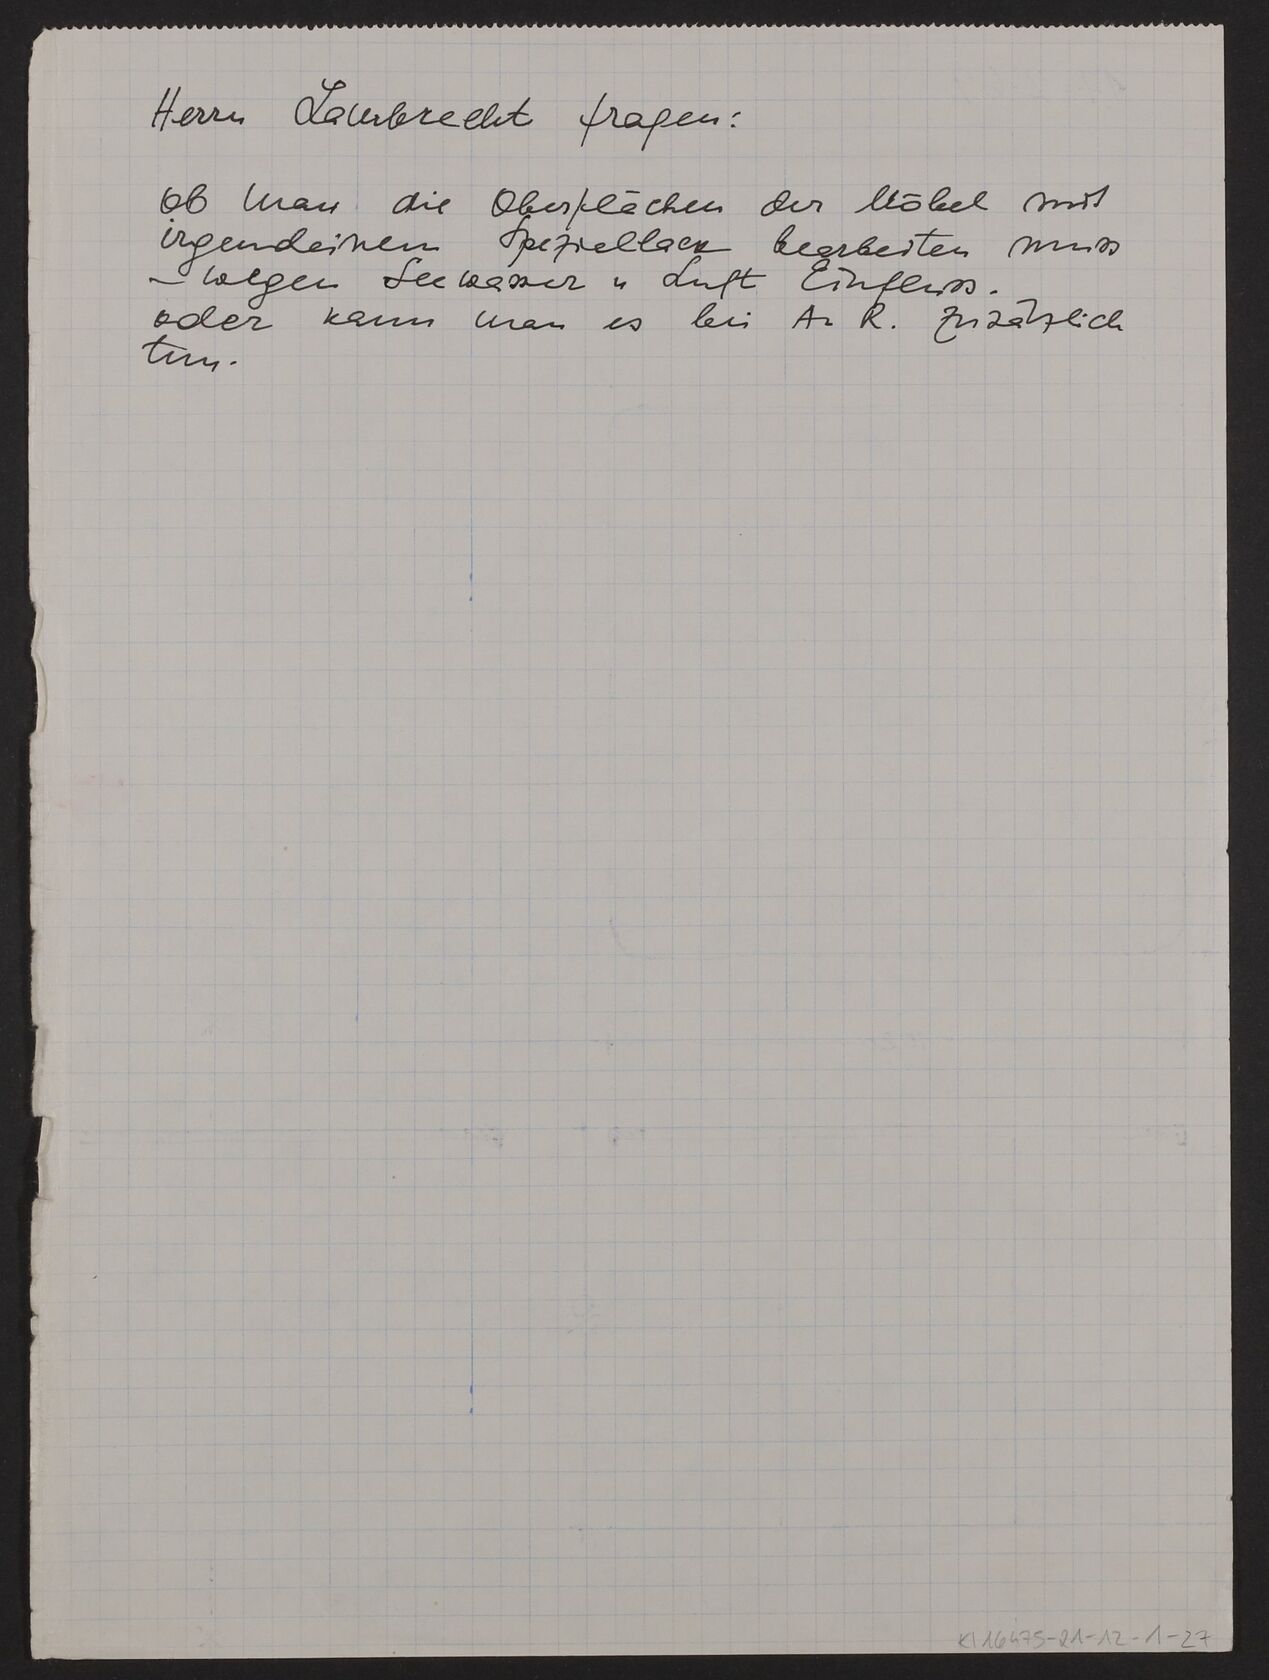 Herrn Lambrecht fragen:
ob man die Oberflächen der Möbel mit
irgendeinem Speziellack bearbeiten muss
– wegen Seewasser u Luft Einfluss.
oder kann man es bei A. R. zusätzlich
tun.
KI 16475-21-12-1-27